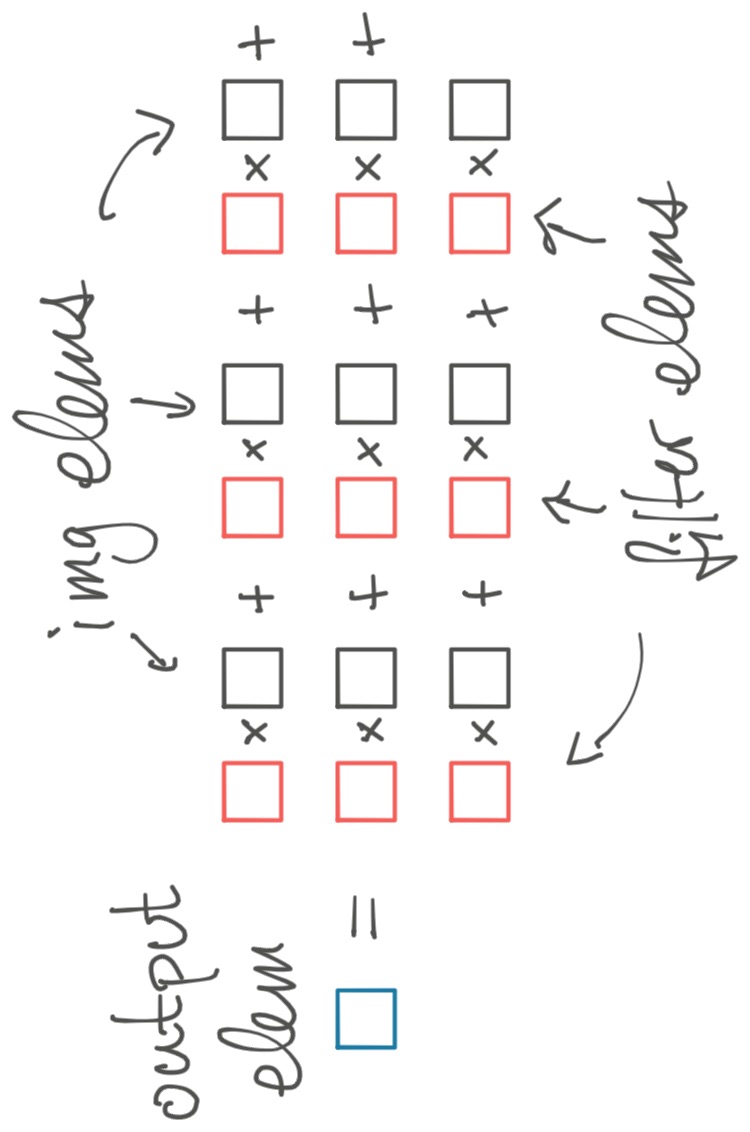 img elems
output
elem
□ × □ + □ × □ + □ × □ +
□ = □ × □ + □ × □ + □ × □ +
□ × □ + □ × □ + □ × □
filter elems